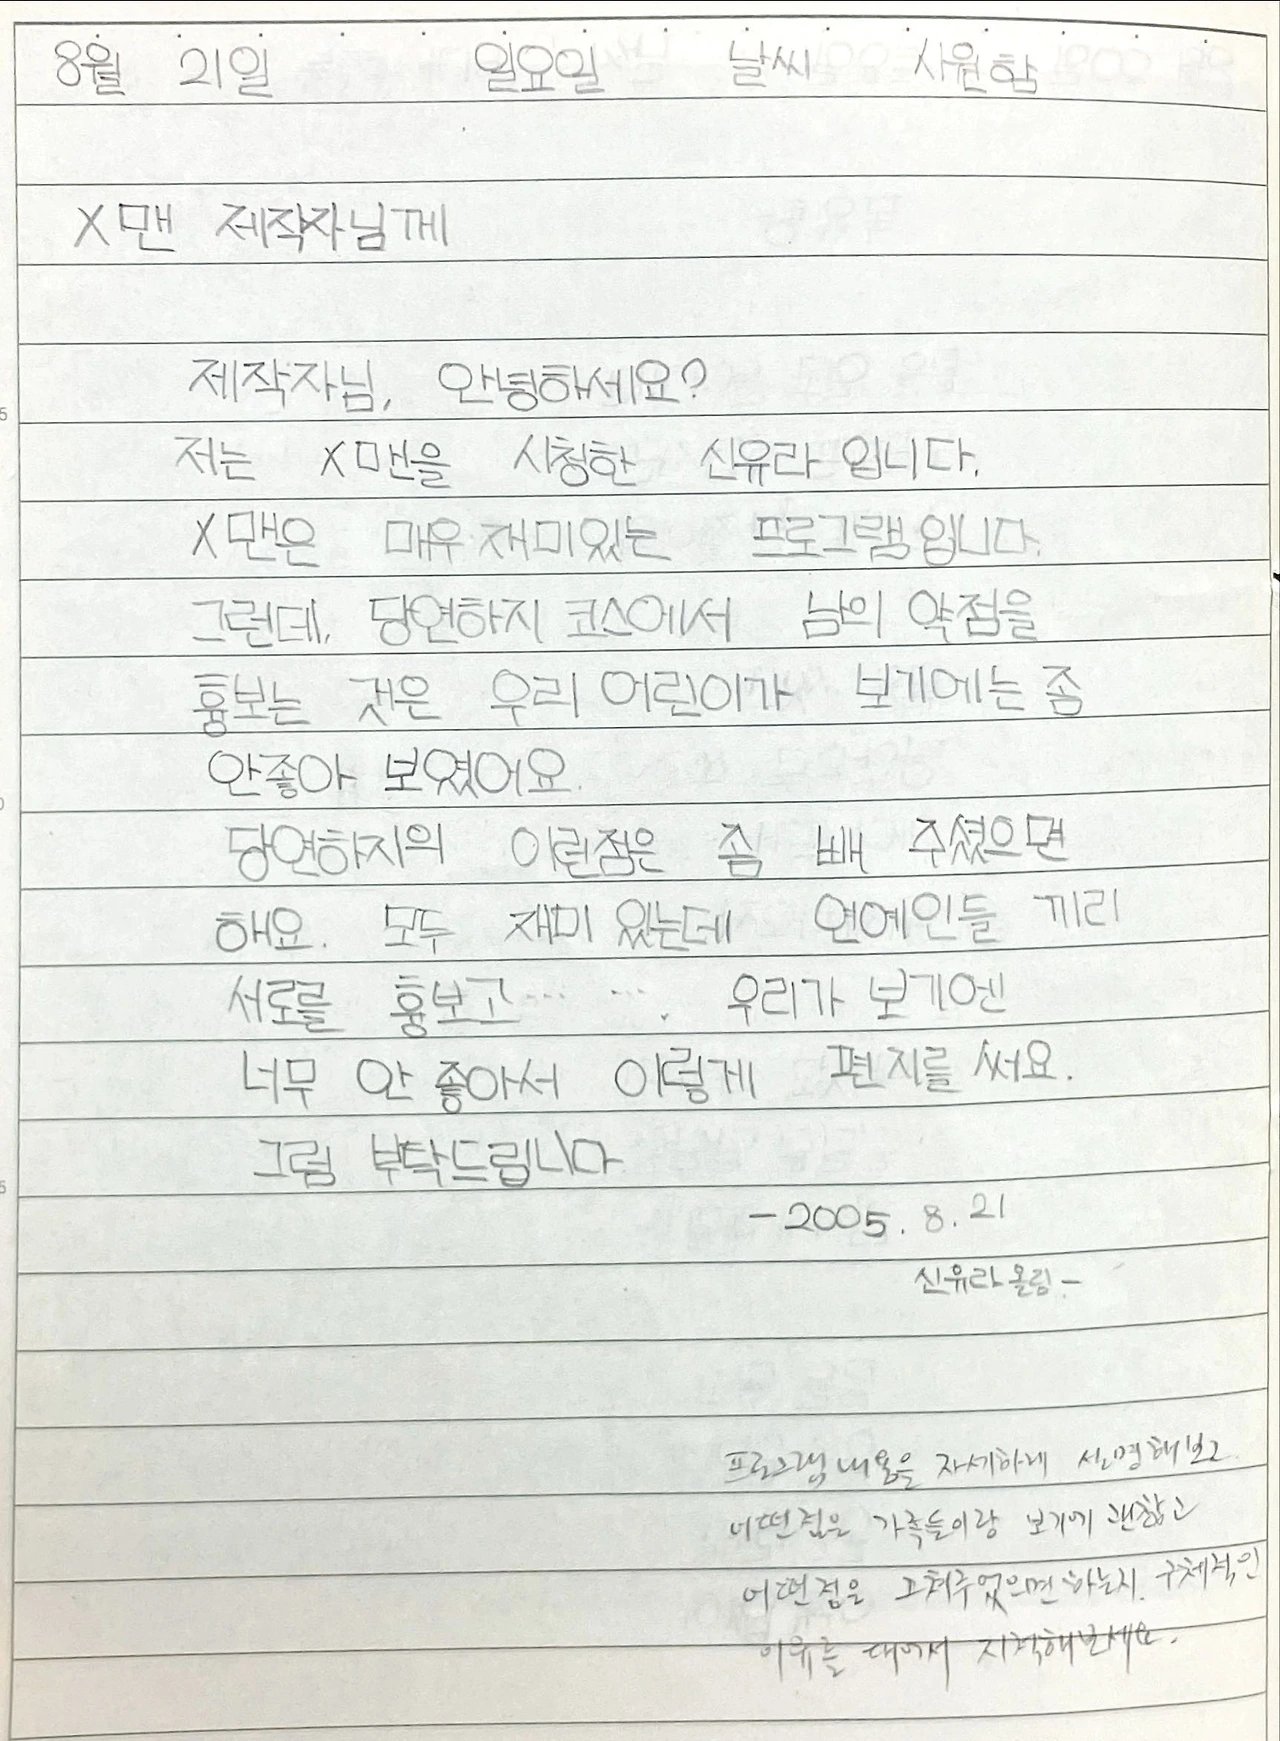 8월 21일 일요일 날씨 시원함
X맨 제작자님께
제작자님, 안녕하세요?
저는 X맨을 시청한 신유라 입니다.
X맨은 매우 재미있는 프로그램 입니다.
그런데, 당연하지 코스에서 남의 약점을
흉보는 것은 우리 어린이가 보기에는 좀
안좋아 보였어요.
당연하지의 이런점은 좀 빼 주셨으면
해요. 모두 재미 있는데 연예인들 끼리
서로를 흉보고…… …. 우리가 보기엔
너무 안 좋아서 이렇게 편지를 써요.
그럼 부탁드립니다
-2005. 8. 21
신유라 올림-
프로그램 내용은 자세하게 설명해보고
어떤점은 가족들이랑 보기에 괜찮고
어떤점은 고쳐주었으면 하는지. 구체적인
이유를 대어서 지적해보세요.
5
0
5